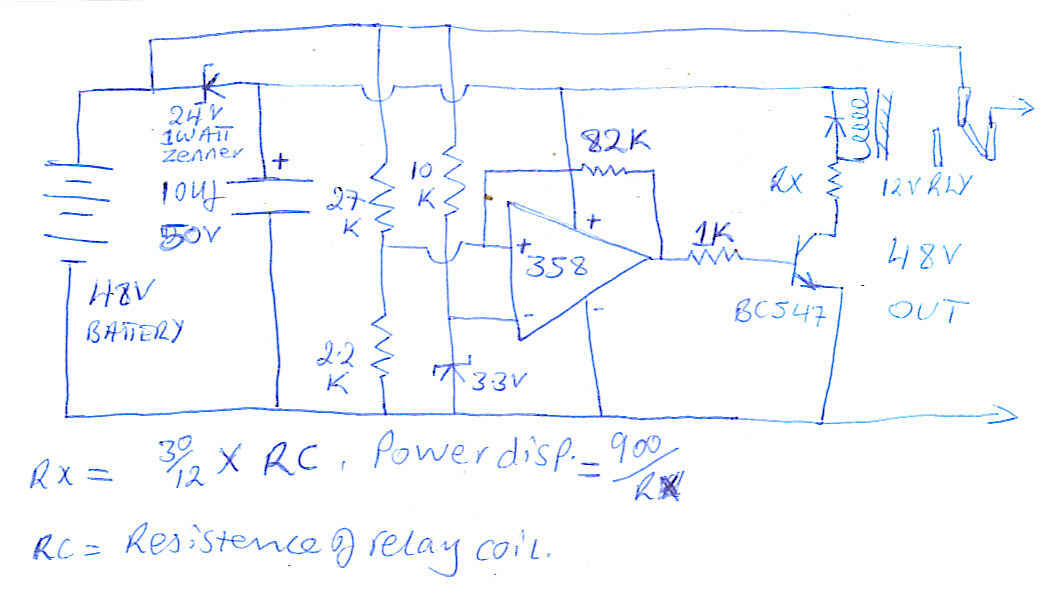 24V
1WATT
Zenner
+
10uf
50V
48V
BATTERY
27
K
10
K
2.2
K
3.3V
82K
+
+
358
-
-
1K
BC547
RX
12V RLY
48V
OUT
RX = 30/12 X RC, Power disp. = 900/RX
RC = Resistence of relay coil.